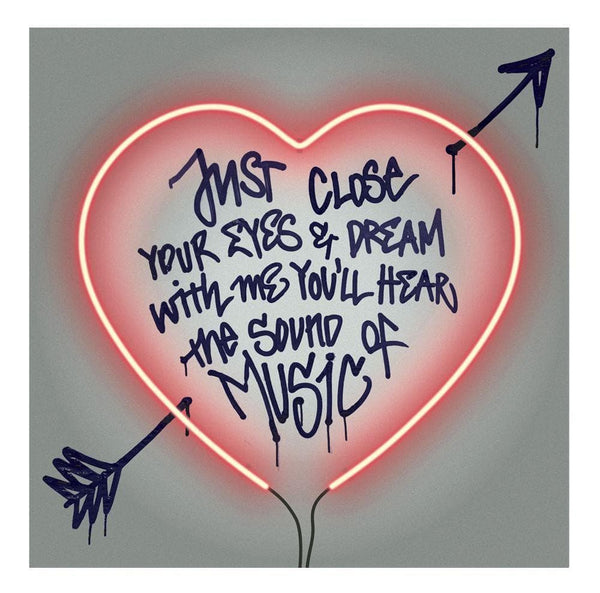 JUST CLOSE
YOUR EYES & DREAM
with me YOU'LL HEAR
the SOUND OF
MUSIC